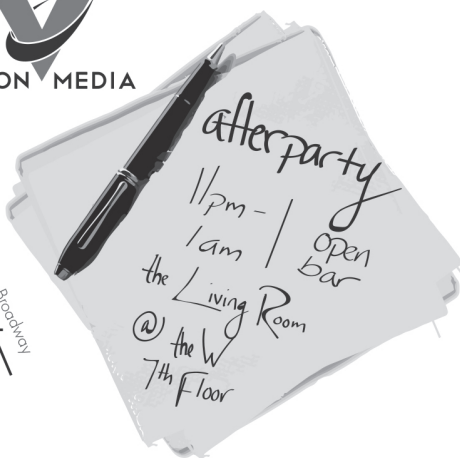 ON MEDIA
afterparty
11pm-
1am
open
bar
the Living Room
@ the W
7th Floor
Broadway